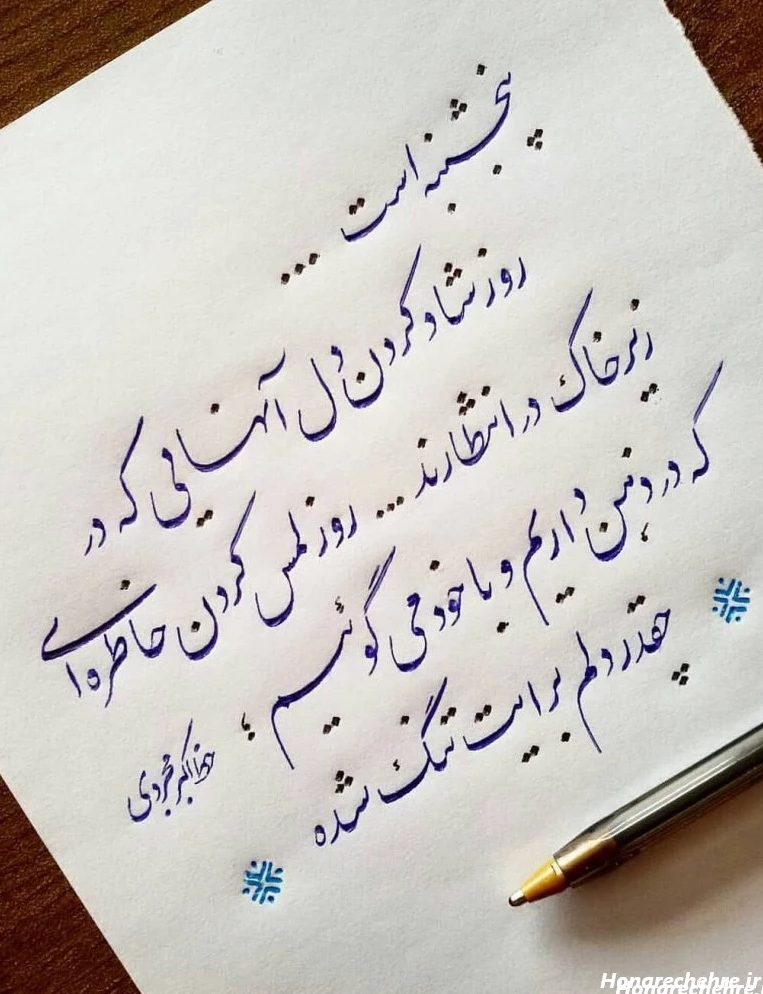 پنجشنبه است
...
روز شاد کردن دل آنهایی که در
زیر خاک در انتظارند... روز لمس کردن خاطره‌ای
که در ذهن داریم و با خود می گوئیم ؛
چقدر دلم برایت تنگ شده
اکبر مجردی
Honarechehre.ir
Honarechehre.ir